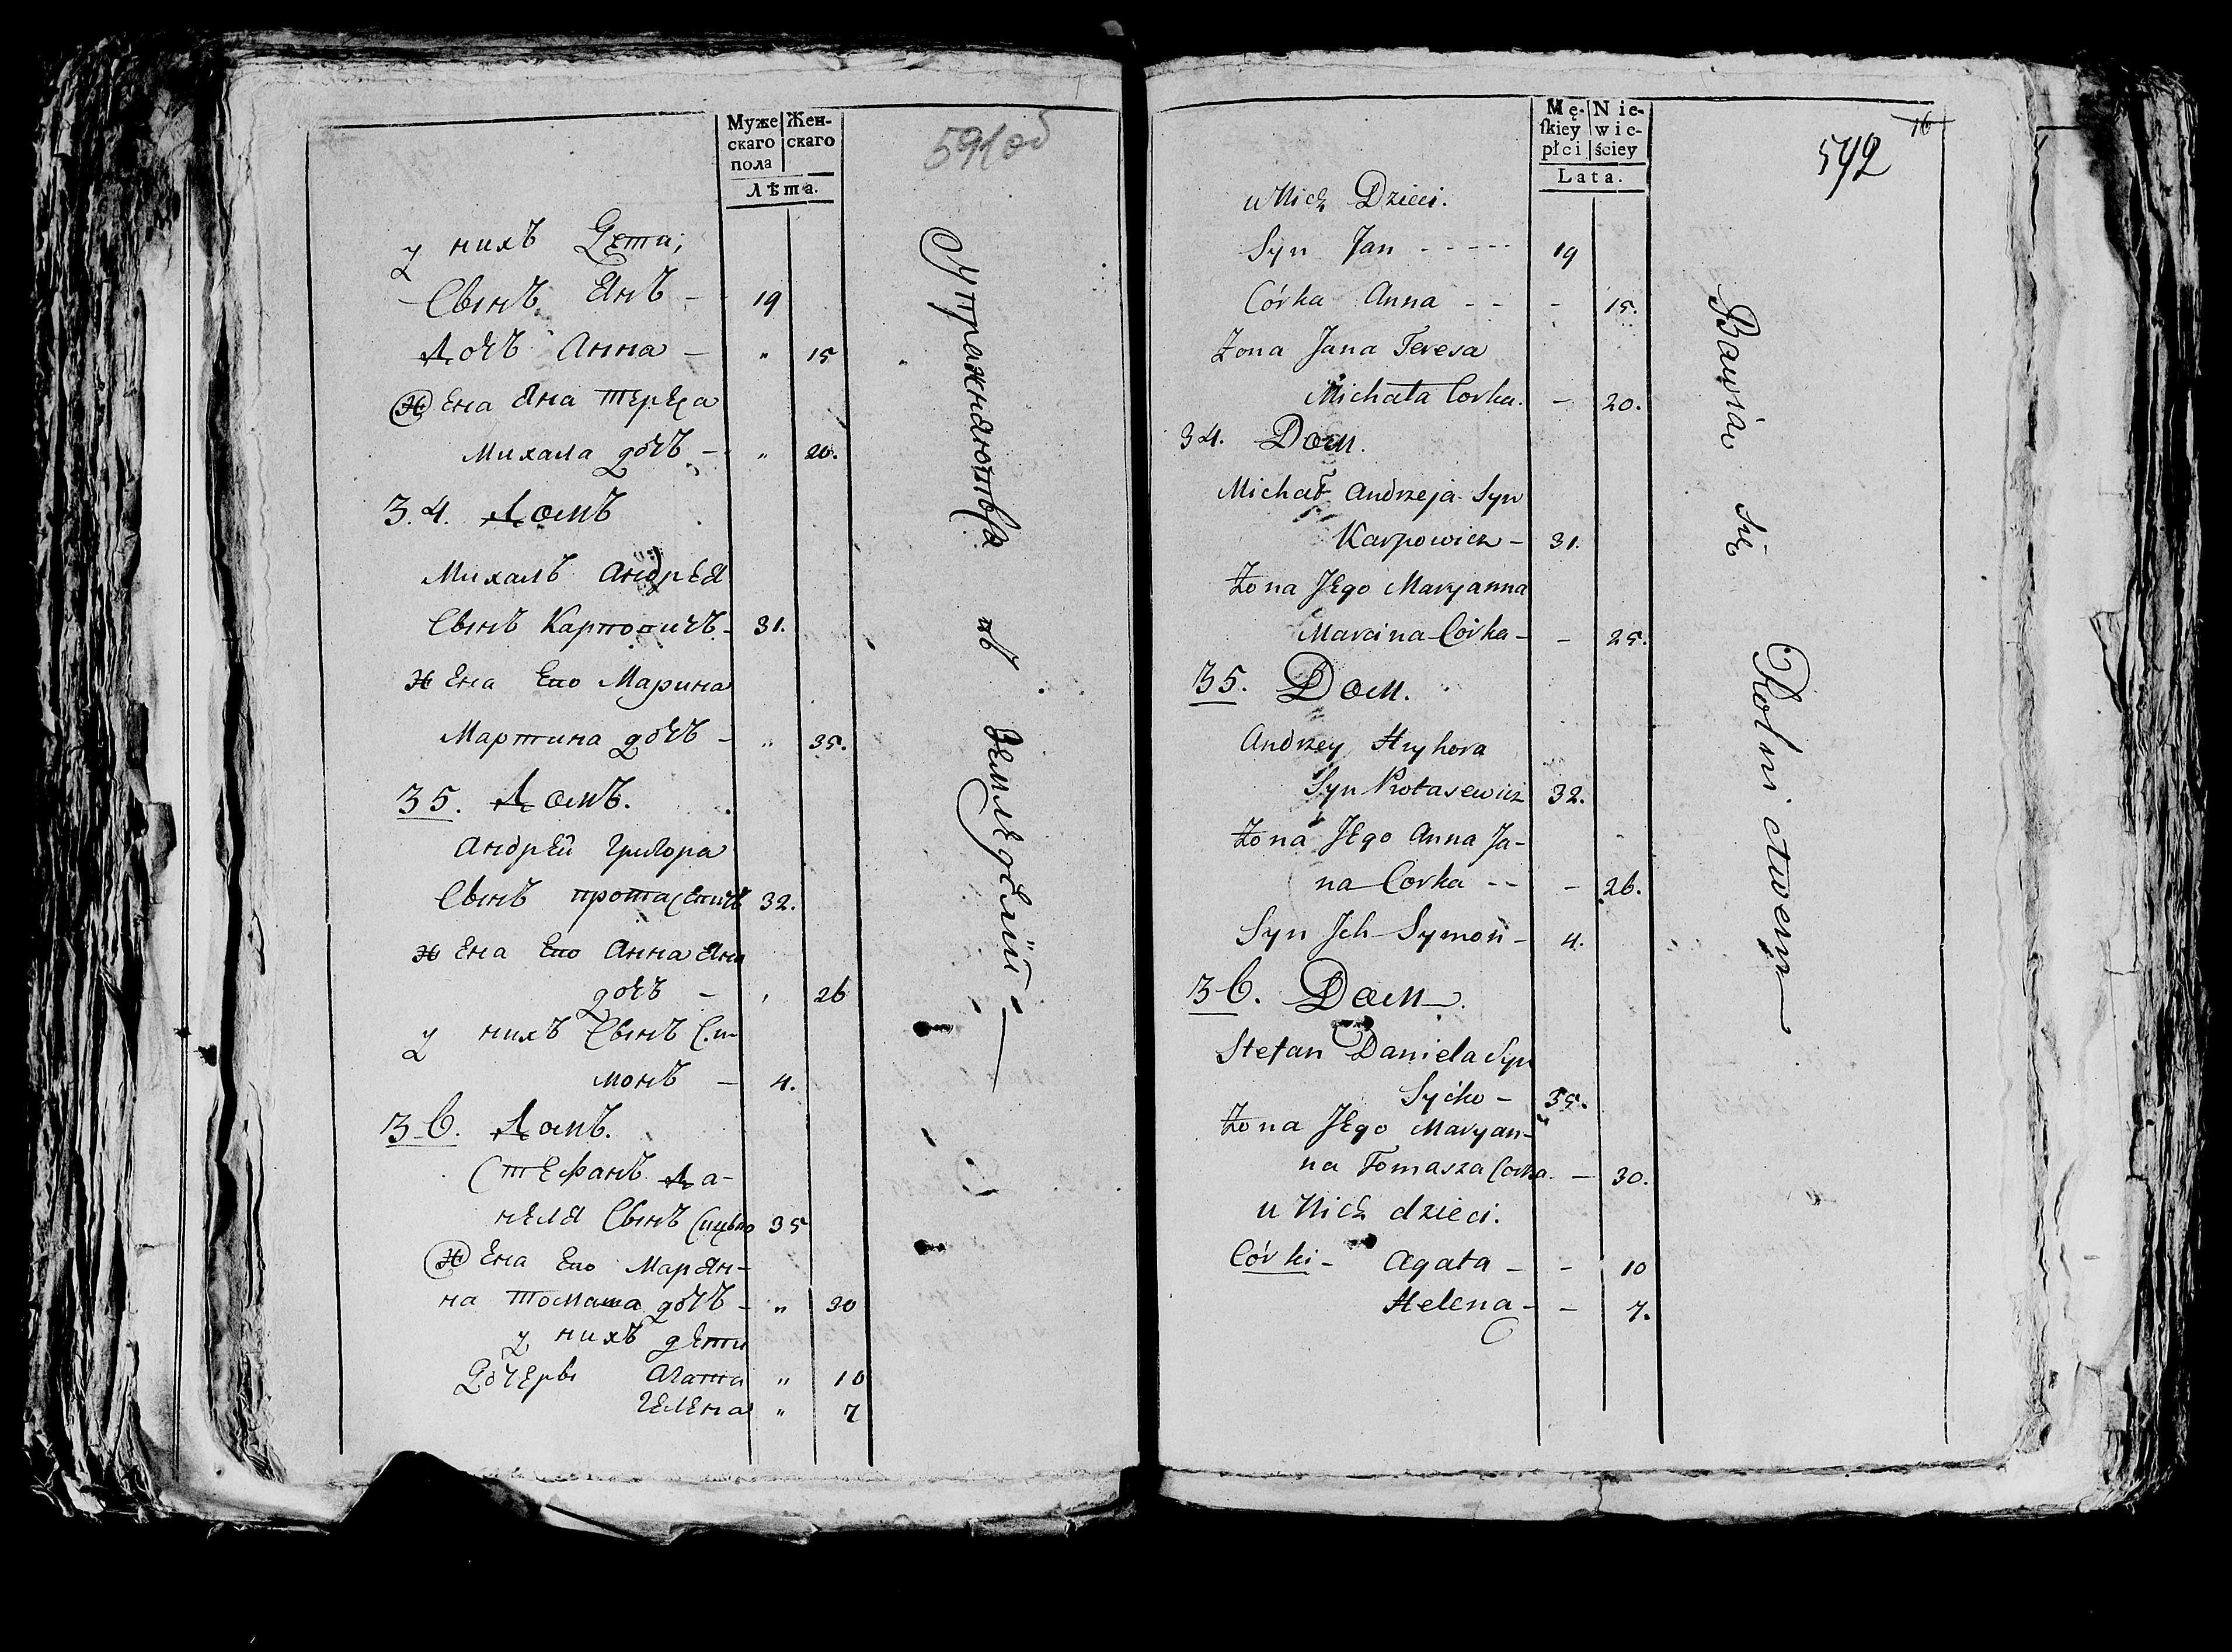 Муже Жен-
скаго скаго
пола
Лѣта.
591об
у нихъ Дети;
Сынъ Янъ - 19
Дочъ Анна - " 15
Жена Яна Тереса
Михала дочъ - " 20.
34. Домъ
Михалъ Андрея
Сынъ Карповичъ - 31.
Жена Его Марина
Мартина дочъ - " 35.
35. Домъ.
Андрей Григора
Сынъ Протасевичъ 32.
Жена Его Анна Яна
дочъ - " 26
у нихъ Сынъ Си-
монъ - 4.
36. Домъ.
Стефанъ Да-
неля Сынъ Сицько 35
Жена Его Марян-
на Томаша дочъ - " 30
у нихъ дети
Дочеры Агата " 10
Гелена " 7
Упражняются въ Земледелии
Mę- Nie-
skiey wie-
płci ściey
Lata.
592
16
u Nich Dzieci.
Syn Jan - - - - - 19
Córka Anna - - - 15.
Żona Jana Teresa
Michała Corka. - 20.
34. Dom.
Michał Andrzeja Syn
Karpowicz - 31.
Żona JEgo Maryanna
Marcina Córka - - 25.
35. Dom.
Andrzey Hryhora
Syn Protasewicz 32.
Żona JEgo Anna Ja-
na Corka - - - 26.
Syn Jch Symon - 4.
36. Dom.
Stefan Daniela Syn
Syćko - 35.
Żona JEgo Maryan-
na Tomasza Corka. - 30.
u Nich dzieci.
Córki - Agata - - 10
Helena - - 7.
Bawią się Rolnictwem